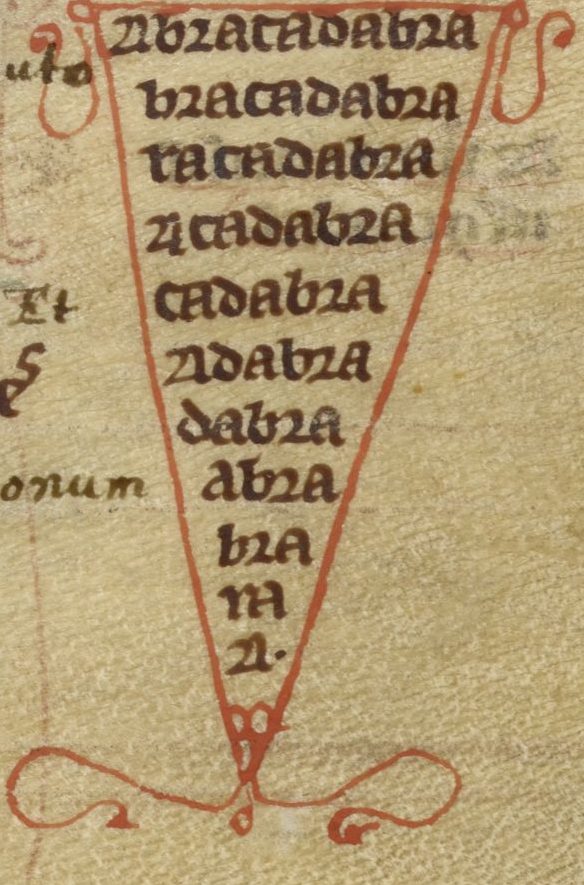 uto
Abracadabra
bracadabra
racadabra
Acadabra
cadabra
Adabra
dabra
Et
onum
abra
bra
ra
A.